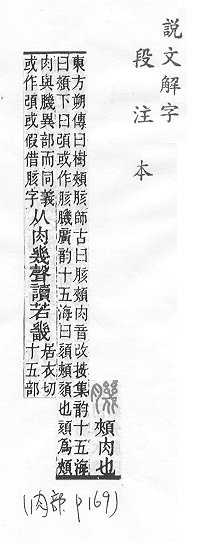 說文解字
段注本
𦟽 頰肉也
東方朔傳曰樹頰胲師古曰胲頰肉音改按集韵十五海
曰頦下曰頭或作胲臄廣韵十五海曰頦頰頦也頦為頰
肉與臄異部而同義
或作頭或假借胲字
从肉幾聲讀若畿
居衣切
十五部
(肉部 p169)